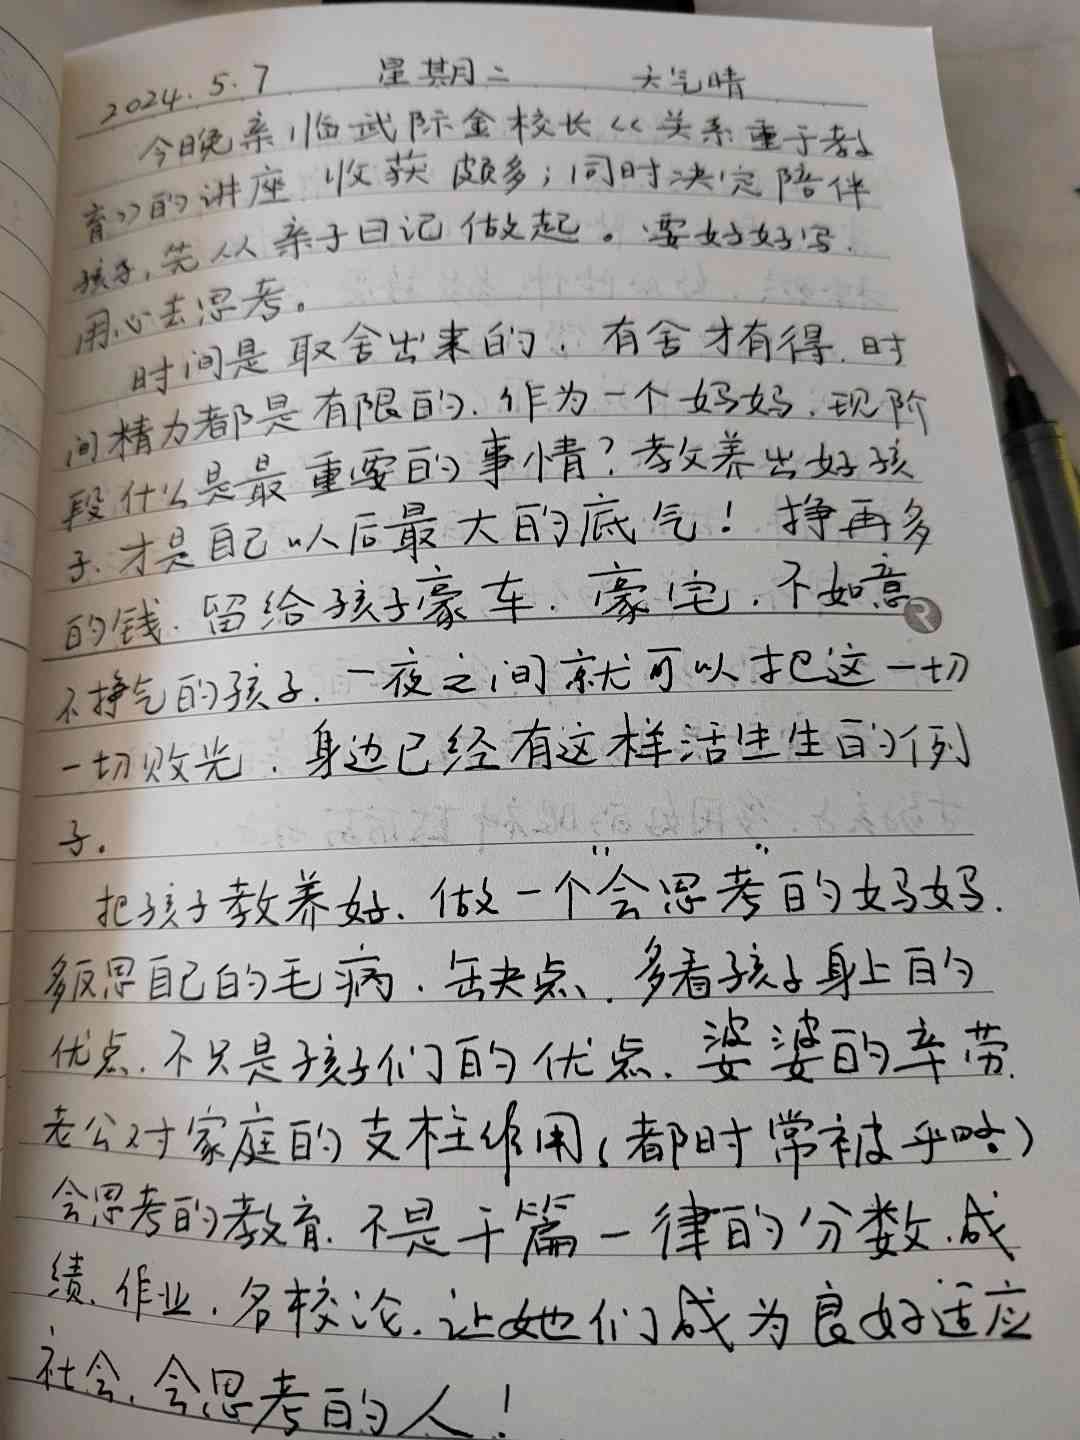 2024.5.7 星期二 天气晴
今晚亲临武际金校长《关系重于教
育》的讲座 收获颇多；同时决定陪伴
孩子，先从亲子日记做起。要好好写.
用心去思考。
时间是取舍出来的，有舍才有得.时
间精力都是有限的.作为一个妈妈.现阶
段什么是最重要的事情？教养出好孩
子.才是自己以后最大的底气！挣再多
的钱.留给孩子豪车.豪宅.不如意
不挣气的孩子.一夜之间就可以把这一切
一切败光.身边已经有这样活生生的例
子.
把孩子教养好.做一个“会思考”的妈妈.
多反思自己的毛病.缺点.多看孩子身上的
优点.不只是孩子们的优点.婆婆的辛劳.
老公对家庭的支柱作用(都时常被乎略)
会思考的教育.不是千篇一律的分数.成
绩.作业.名校论.让她们成为良好适应
社会.会思考的人！